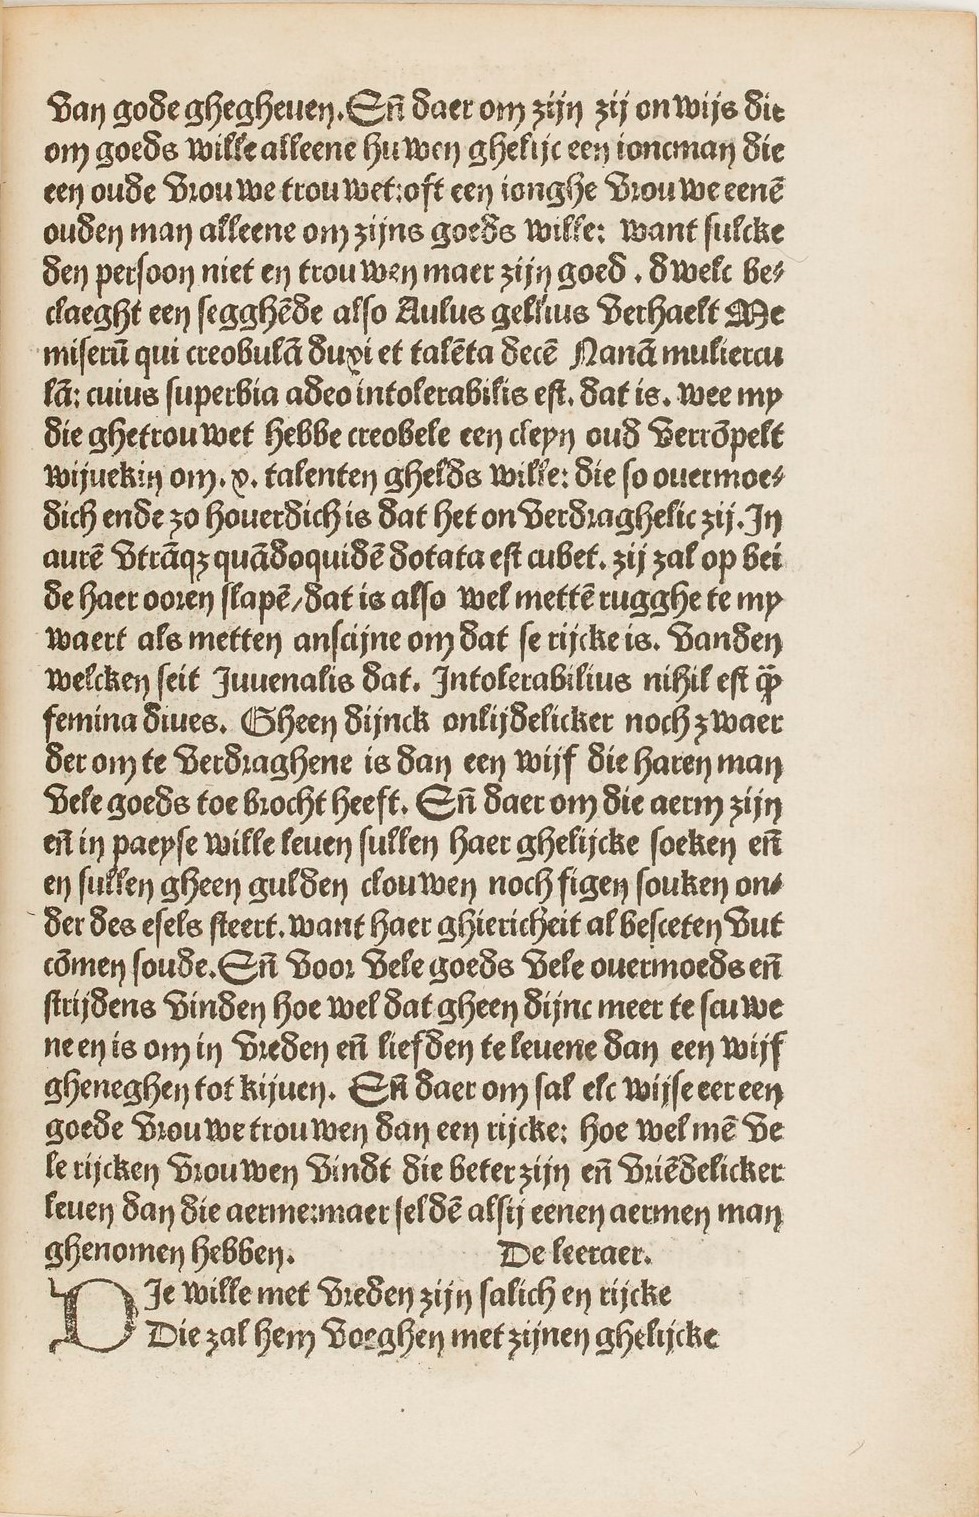 van gode ghegheuen. Eñ daer om zijn zij onwijs die
om goeds wille alleene huwen ghelijc een ioncman die
een oude vrouwe trouwet: oft een ionghe vrouwe eenē
ouden man alleene om zijns goeds wille: want sulcke
den persoon niet en trouwen maer zijn goed . dwelc be⸗
claeght een segghēde also Aulus gellius verhaelt Me
miserū qui creobulā duxi et talēta decē Nanā muliercu
lā: cuius superbia adeo intolerabilis est. dat is. wee my
die ghetrouwet hebbe creobele een cleyn oud verrōpelt
wijuekin om. x. talenten ghelds wille: die so ouermoe⸗
dich ende zo houerdich is dat het onverdraghelic zij. In
aurē vtrāqꝫ quādoquidē dotata est cubet. zij zal op bei
de haer ooren slapē/dat is also wel mettē rugghe te my
waert als metten anscijne om dat se rijcke is. vanden
welcken seit Juuenalis dat. Intolerabilius nihil est q̄ꝫ
femina diues. Gheen dijnck onlijdelicker noch zwaer
der om te verdraghene is dan een wijf die haren man
vele goeds toe brocht heeft. Eñ daer om die aerm zijn
eñ in paeyse wille leuen sullen haer ghelijcke soeken eñ
en sullen gheen gulden clouwen noch figen souken on⸗
der des esels steert. want haer ghiericheit al besceten vut
cōmen soude. Eñ voor vele goeds vele ouermoeds eñ
strijdens vinden hoe wel dat gheen dijnc meer te scuwe
ne en is om in vreden eñ liefden te leuene dan een wijf
gheneghen tot kijuen. Eñ daer om sal elc wijse eer een
goede vrouwe trouwen dan een rijcke: hoe wel mē ve
le rijcken vrouwen vindt die beter zijn eñ vriēdelicker
leuen dan die aerme: maer seldē als ij eenen aermen man
ghenomen hebben. De leeraer.
DIe wille met vreden zijn salich en rijcke
Die zal hem voeghen met zijnen ghelijcke